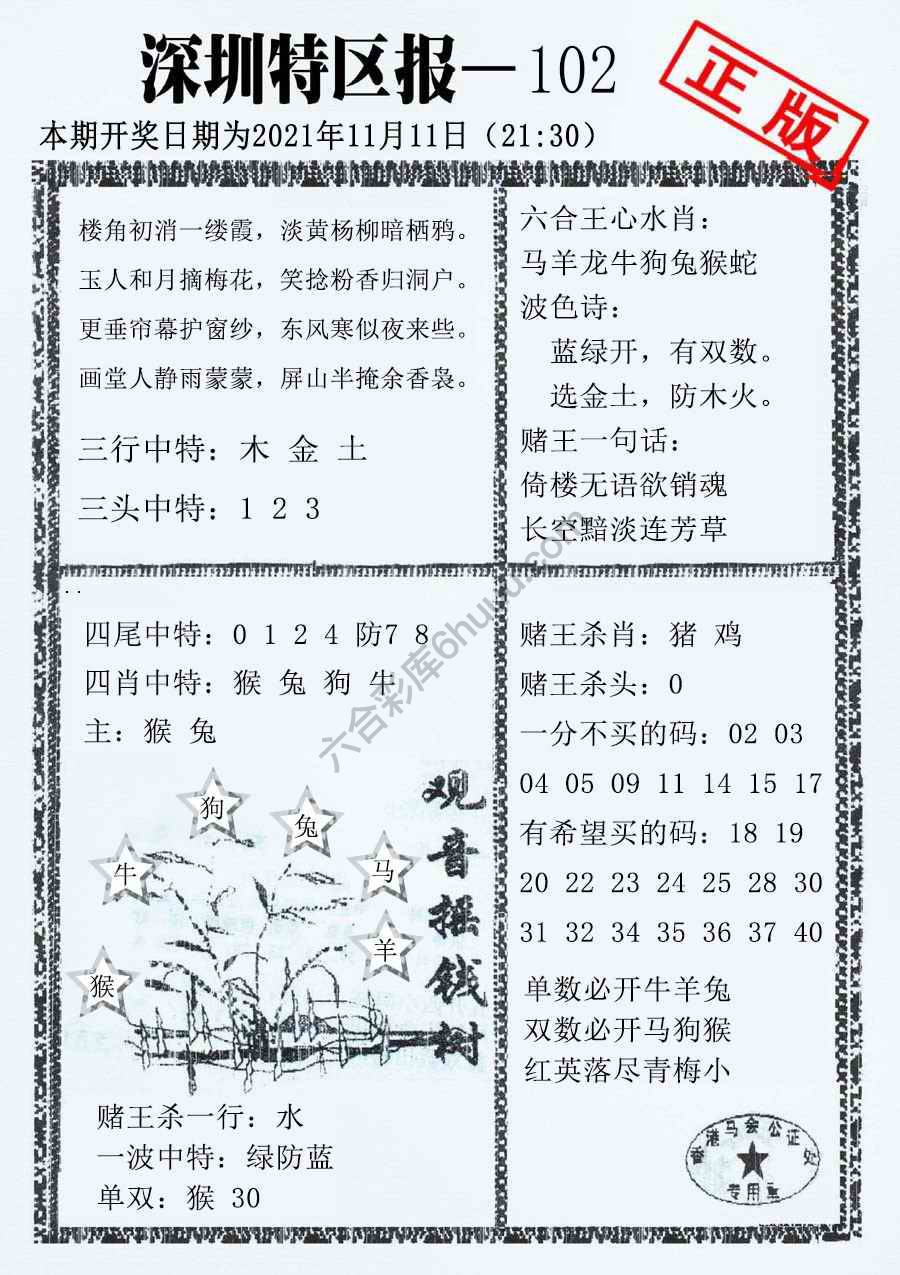 深圳特区报—102
正版
本期开奖日期为2021年11月11日（21:30）
楼角初消一缕霞，淡黄杨柳暗栖鸦。
玉人和月摘梅花，笑捻粉香归洞户。
更垂帘幕护窗纱，东风寒似夜来些。
画堂人静雨蒙蒙，屏山半掩余香袅。
三行中特：木 金 土
三头中特：1 2 3
六合王心水肖：
马羊龙牛狗兔猴蛇
波色诗：
蓝绿开，有双数。
选金土，防木火。
赌王一句话：
倚楼无语欲销魂
长空黯淡连芳草
四尾中特：0 1 2 4 防7 8
四肖中特：猴 兔 狗 牛
主：猴 兔
狗
兔
牛
马
羊
猴
观音摇钱树
赌王杀一行：水
一波中特：绿防蓝
单双：猴 30
赌王杀肖：猪 鸡
赌王杀头：0
一分不买的码：02 03
04 05 09 11 14 15 17
有希望买的码：18 19
20 22 23 24 25 28 30
31 32 34 35 36 37 40
单数必开牛羊兔
双数必开马狗猴
红英落尽青梅小
香港马会公证处
专用章
六合彩库6huu.com